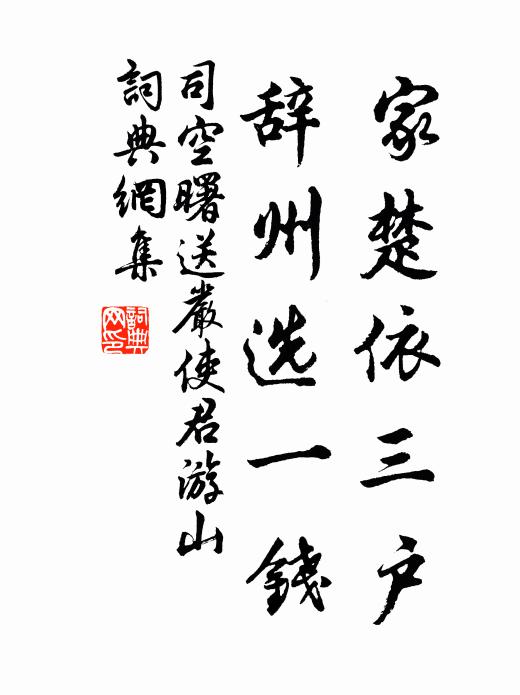 家楚依三户
辞州选一錢
司空曙送嚴使君游山
詞典網集
詞典
网印